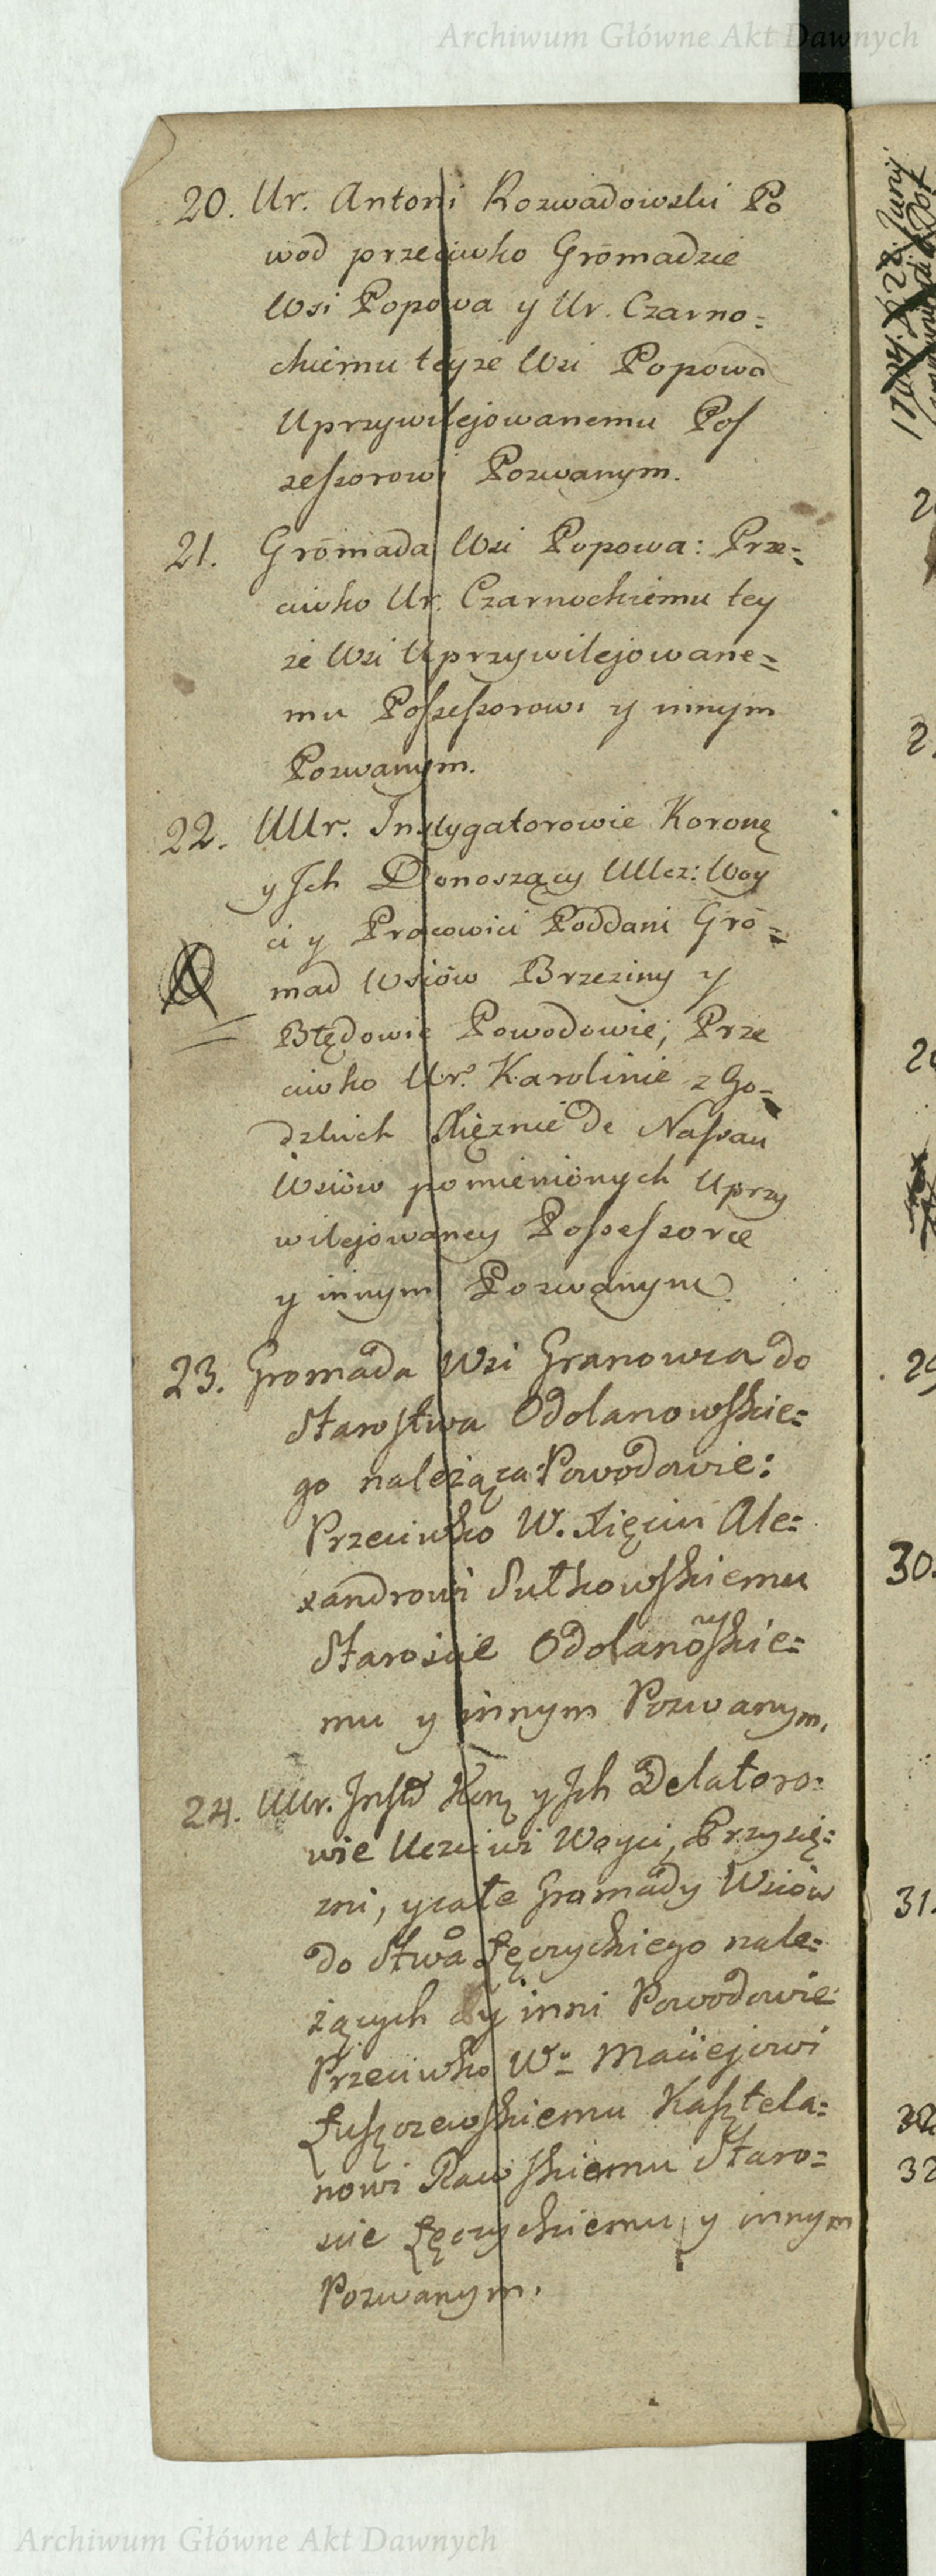 Archiwum Główne Akt Dawnych
20. Ur. Antoni Rozwadowski Po
wod przeciwko Gromadzie
Wsi Popowa y Ur. Czarno=
ckiemu teyże Wsi Popowa
Uprzywilejowanemu Pos
sessorowi Pozwanym.
21. Gromada Wsi Popowa: Prze=
ciwko Ur. Czarnockiemu tey
że Wsi Uprzywilejowane=
mu Possessorowi y innym
Pozwanym.
22. UUr. Instygatorowie Koronę
y Ich Donoszący UUcz: Woy
ci y Pracowici Poddani Gro=
mad Wsiów Brzeziny y
Błędowie Powodowie; Prze
ciwko Ur. Karolinie z Go=
dzkich Xiężnie De Nassau
Wsiów pomienionych Uprzy
wilejowaney Possessorce
y innym Pozwanym.
23. Gromada Wsi Granowca do
Starostwa Odolanowskie=
go należąca: Powodowie:
Przeciwko W. Xięciu Ale=
xandrowi Sułkowskiemu
Staroście Odolanowskie=
mu y innym Pozwanym.
24. UUr. Inst Korę y Ich Delatoro=
wie Uczciwi Woyci, Przysię=
żni, y całe Gramady Wsiów
do Stwa Łęczyckiego nale=
żących y inni Powodowie
Przeciwko W. Maciejowi
Łuszczewskiemu Kasztela=
nowi Rawskiemu Staro=
ście Łęczyckiemu y innym
Pozwanym.
30.
31.
32
Archiwum Główne Akt Dawnych